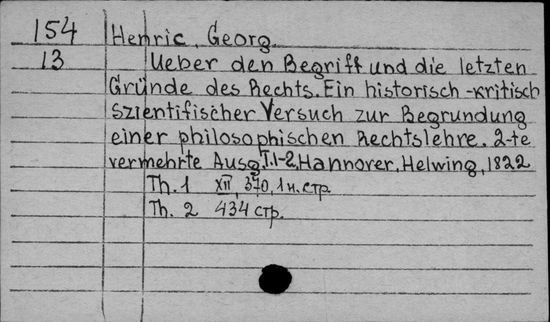 154 Henric, Georg.
13 Ueber den Begriff und die letzten
Gründe des Rechts. Ein historisch-kritisch
szientifischer Versuch zur Begrundung
einer philosophischen Rechtslehre. 2-te
vermehrte Ausg. T.1-2, Hannover, Helwing, 1822
Th. 1 XII, 370, 1 н. стр.
Th. 2 434 стр.